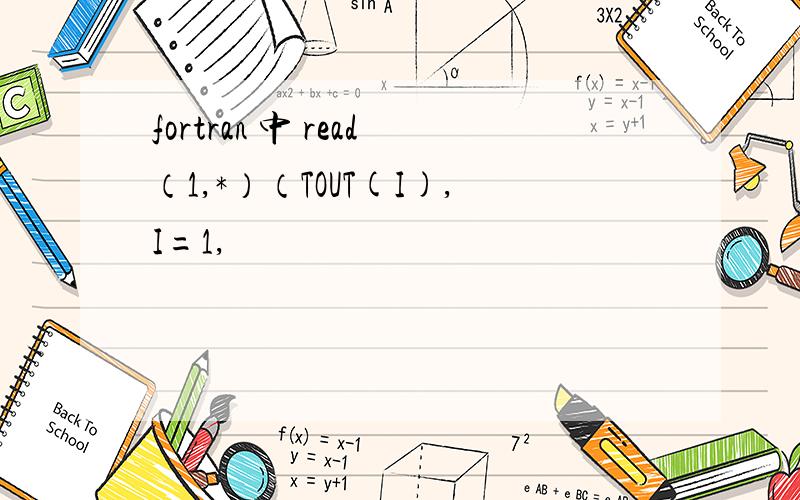 sin A
3X2
Back To
School
α
x
ax2 + bx +c = 0
f(x) = x-1
y = x-1
x = y+1
C
fortran 中 read
（1,*）（TOUT(I),
I=1,
Back To
School
f(x) = x-1
y = x-1
x = y+1
7²
e AB + e BC = e A